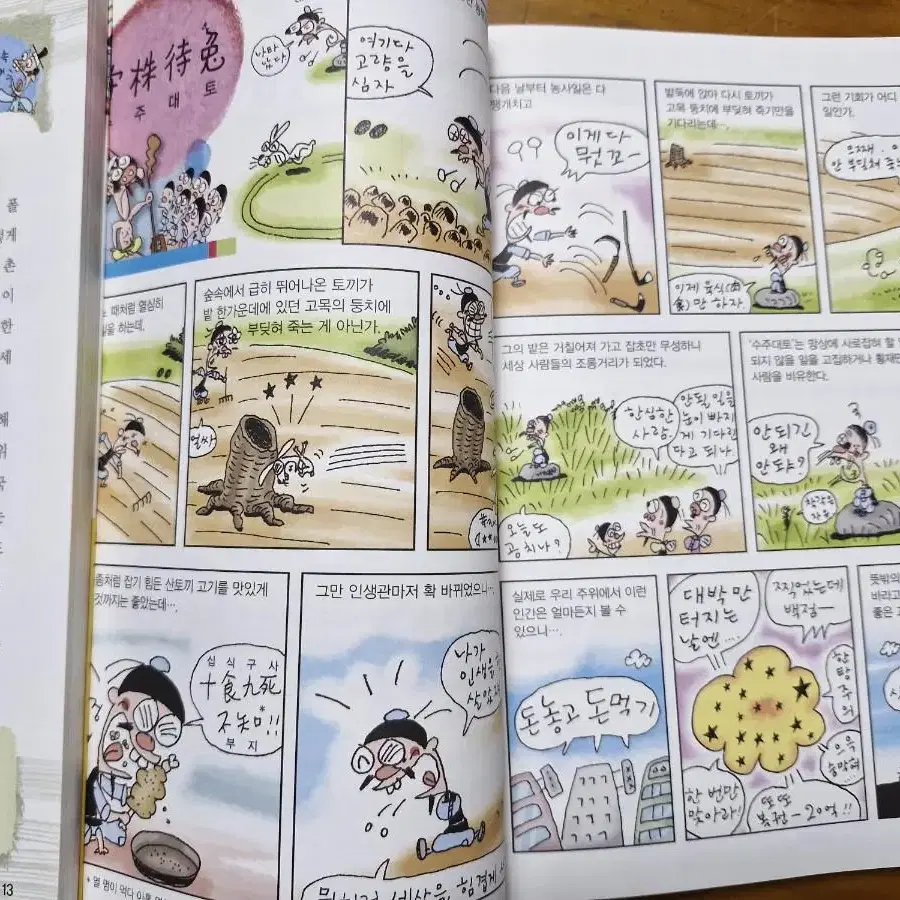 풀
촌
이
한
세
위
국
는
13
株待兔
주 대 토
나타
났다
여기다
고량을
심자
때처럼 열심히
하는데,
숲속에서 급히 뛰어나온 토끼가
밭 한가운데에 있던 고목의 둥치에
부딪혀 죽는 게 아닌가.
얼싸
좀처럼 잡기 힘든 산토끼 고기를 맛있게
것까지는 좋았는데…,
십 식 구 사
十食九死
不知!!
부 지
그만 인생관마저 확 바뀌었으니…,
나가
인생을
살았
세상을 힘겹게
다음 날부터 농사일은 다
팽개치고
이게 다
뭣꼬~
밭둑에 앉아 다시 토끼가
고목 둥치에 부딪혀 죽기만을
기다리는데…,
이제 육식(肉
食)만 하자
그런 기회가 어디
일인가.
으째.
안 부딪쳐
그의 밭은 거칠어져 가고 잡초만 무성하니
세상 사람들의 조롱거리가 되었다.
한심한
사람.
안될 일을
눈이 빠지
게 기다린
다고 되나.
오늘도
공치나?
'수주대토'는 망상에 사로잡혀 할
되지 않을 일을 고집하거나 횡재만
사람을 비유한다.
안되긴
왜
안되야?
실제로 우리 주위에서 이런
인간은 얼마든지 볼 수
있으니…,
돈놓고 돈먹기
ㄱㄱㄱ
ㄱㄱㄱ
ㄱㄱㄱ
대박만
터지는
날엔....
찍었는데
백점~
한탕주의
으윽
숭악혀
한 번만
맞아라!
또또
복권~ 20억!!
뜻밖의
바라고
좋은